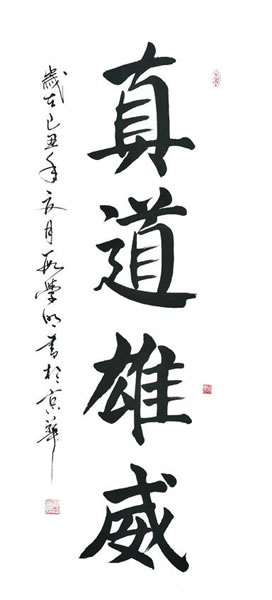 真道雄威
歲在己丑年夏月段學明書於京華